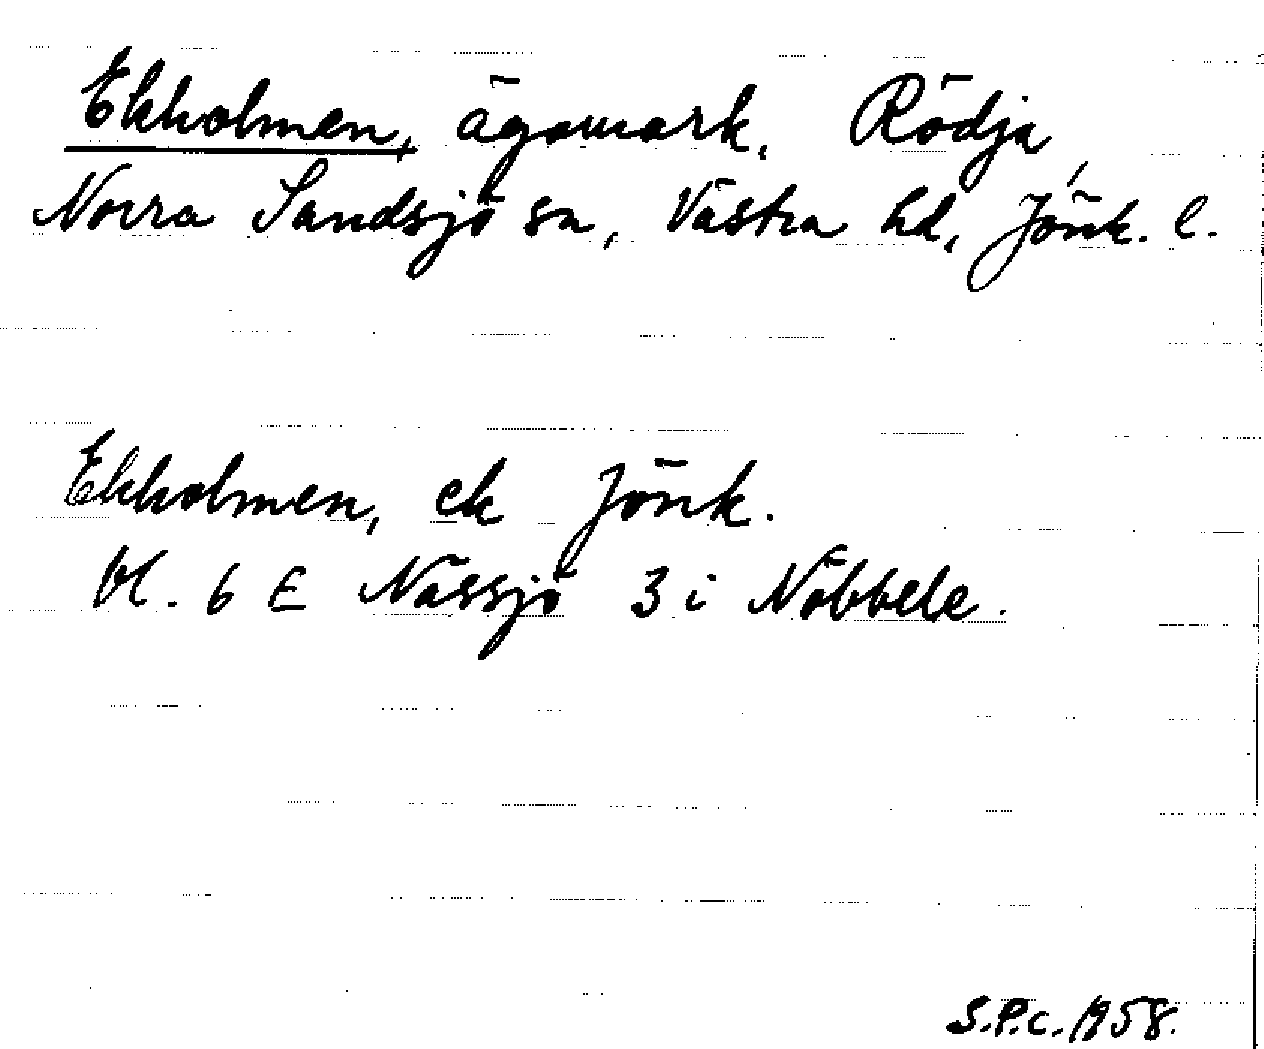 Ekholmen, ägomark, Rödja,
Norra Sandsjö sn, Västra hd, Jönk. l.
Ekholmen, ek Jönk.
bl. 6 E Nässjö 3 i Nöbbele.
S.P.C. 1958.